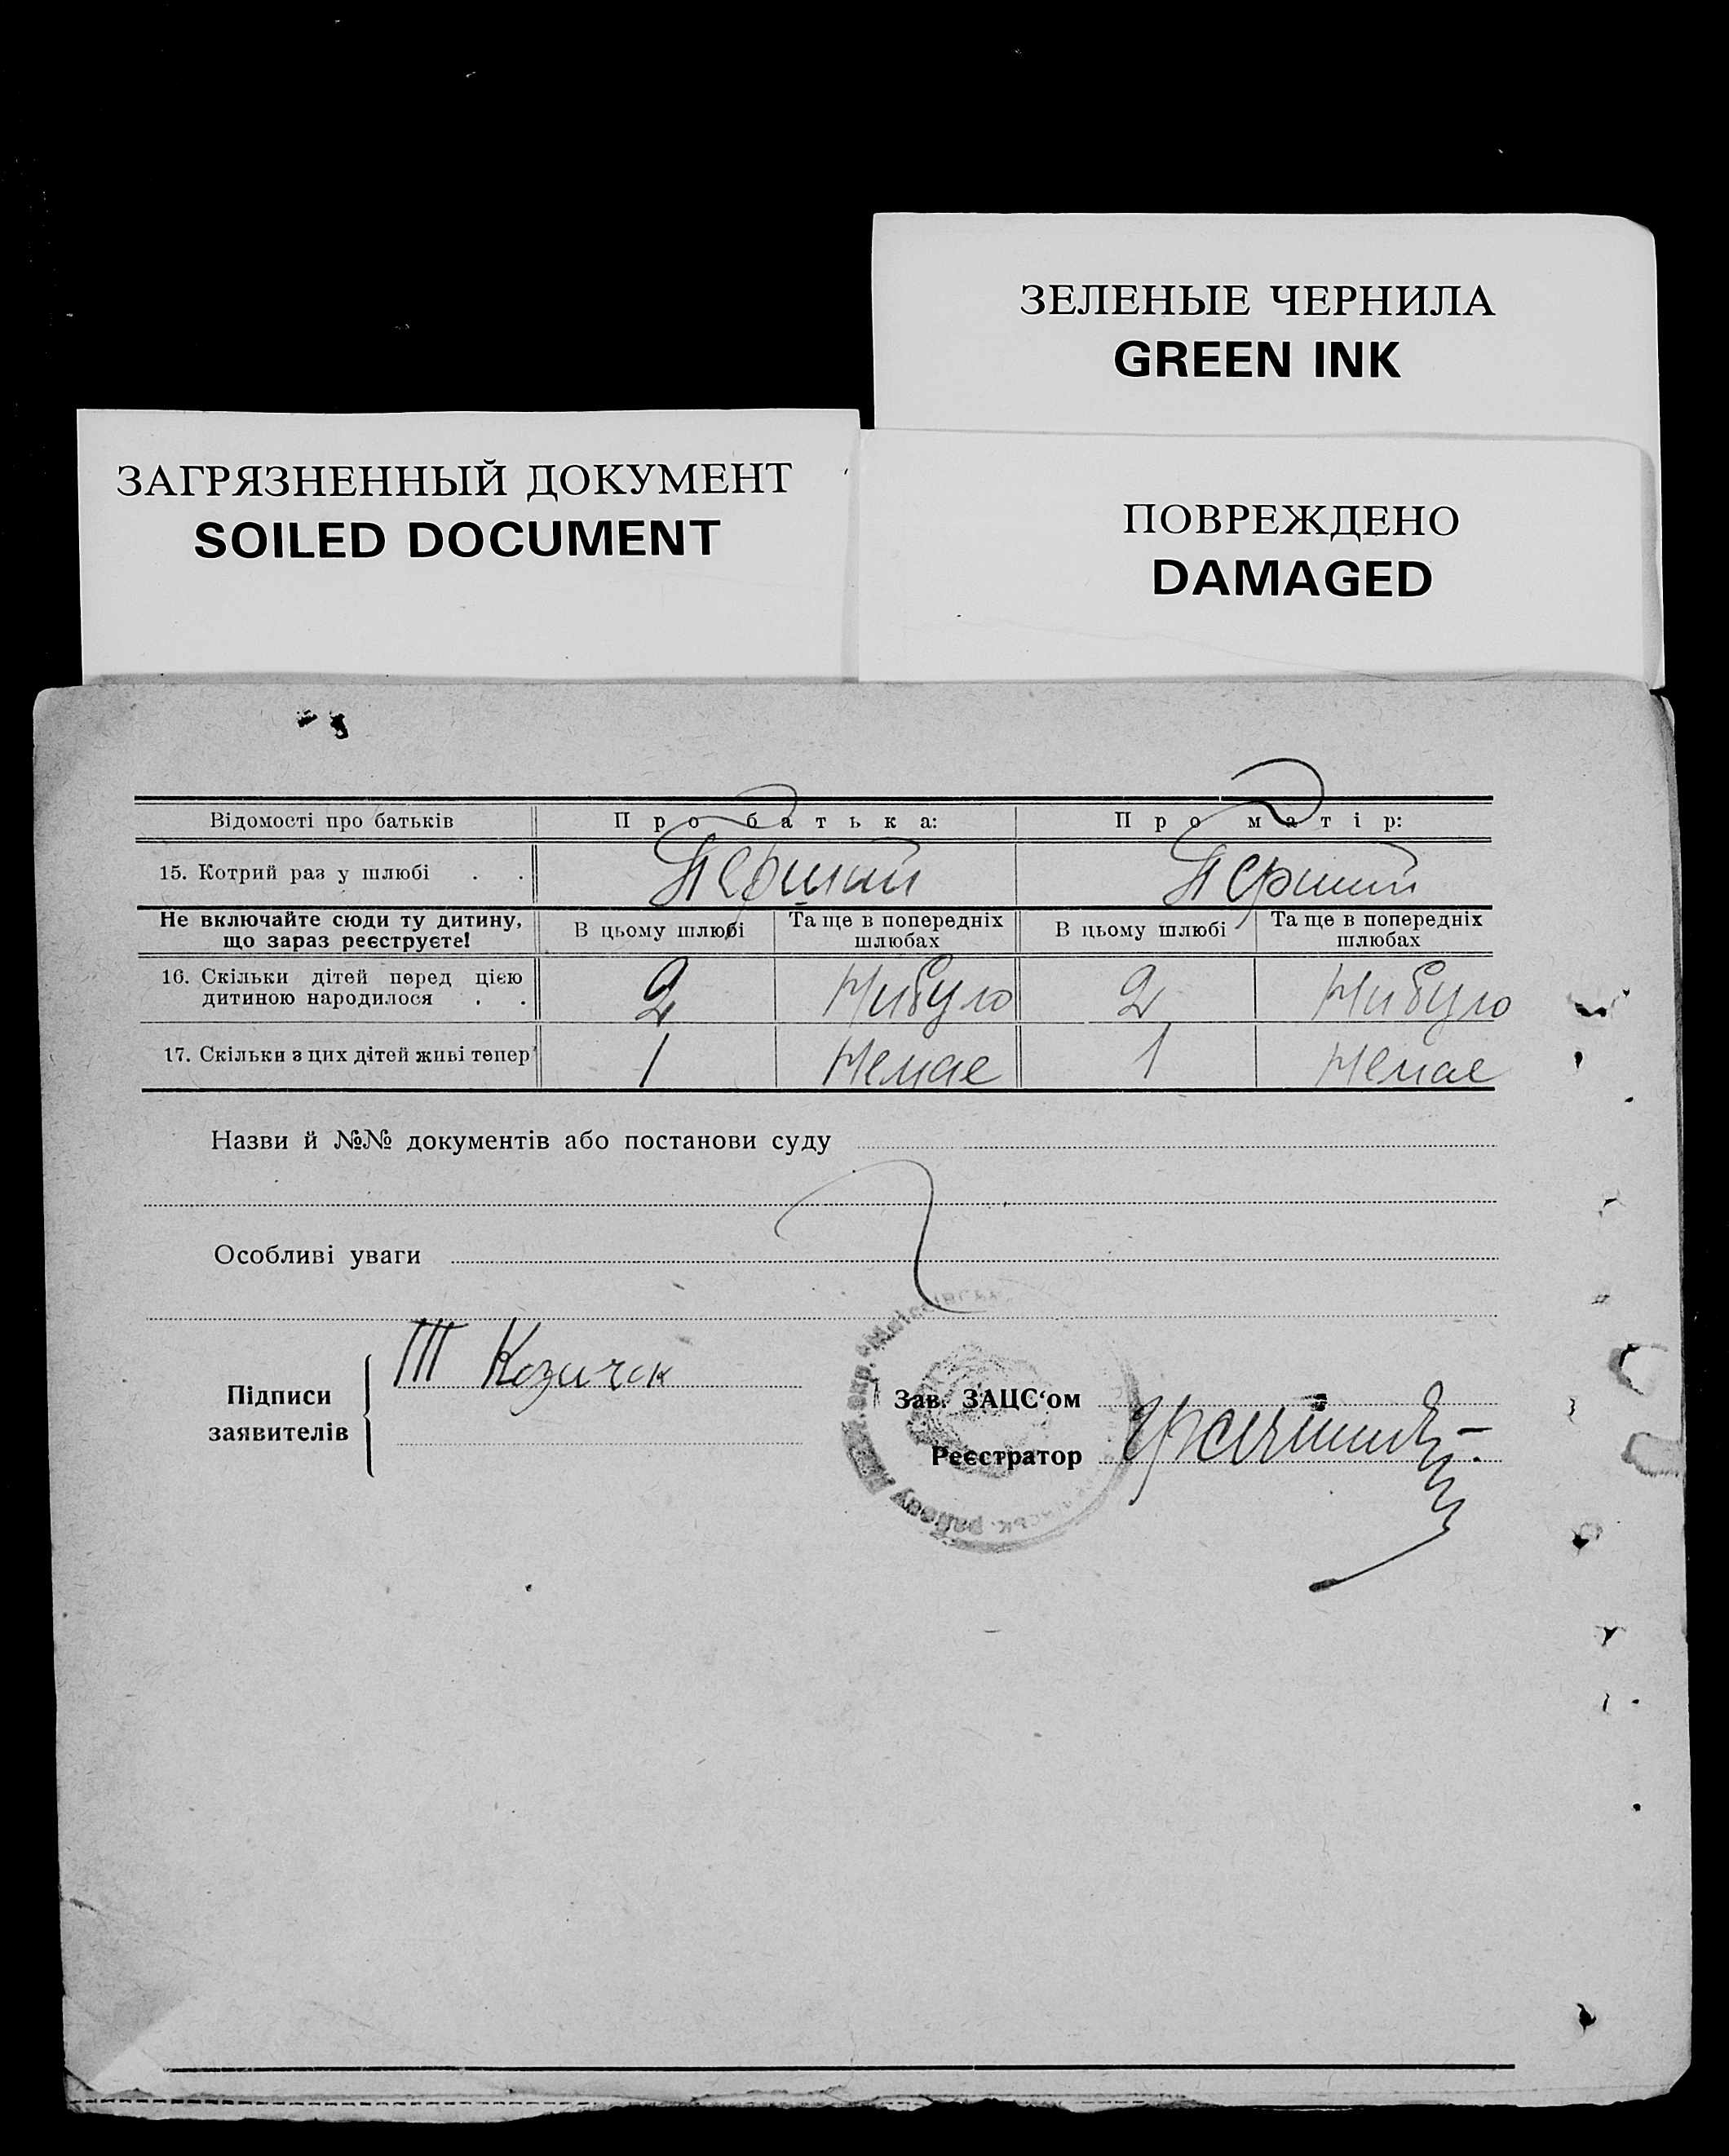 ЗЕЛЕНЫЕ ЧЕРНИЛА
GREEN INK
ЗАГРЯЗНЕННЫЙ ДОКУМЕНТ
SOILED DOCUMENT
ПОВРЕЖДЕНО
DAMAGED
Відомості про батьків Про батька: Про матір:
15. Котрий раз у шлюбі . . Перший Перший
Не включайте сюди ту дитину, що зараз реєструєте! В цьому шлюбі Та ще в попередніх шлюбах В цьому шлюбі Та ще в попередніх шлюбах
16. Скільки дітей перед цією
дитиною народилося . . 2 Нибуло 2 Нибуло
17. Скільки з цих дітей живі тепер 1 Немае 1 Немае
Назви й №№ документів або постанови суду
Особливі уваги
Підписи
заявителів
Т Козичок
Зав. ЗАЦС‘ом
Реєстратор
району